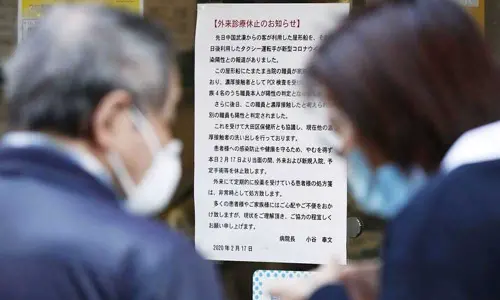 【外来診療休止のお知らせ】
先日中国武漢からの客が利用した屋形船を、
日後利用したタクシー運転手が新型コロナウイ
染陽性との報道がありました。
この屋形船にたまたま当院の職員が
れ、濃厚接触者として PCR 検査を受け
族4名のうち職員本人が陽性の判定と
さらに後日、この職員と濃厚接触したと
別の職員も陽性と判定されました。
これを受けて大田区保健所とも協議し、現在他の
厚接触者の洗い出しを行っております。
患者様への感染防止や健康を守るため、やむを得ず
本日2月17日より当面の間、外来および新規入院、予
定手術等を休止致します。
外来にて定期的に投薬を受けている患者様の処方箋
は、非常時として処方致します。
多くの患者様やご家族様にはご心配やご不便をおか
け致しますが、現状をご理解頂き、ご協力の程宜しく
お願い申し上げます。
病院長 小谷 奉文
2020年2月17日